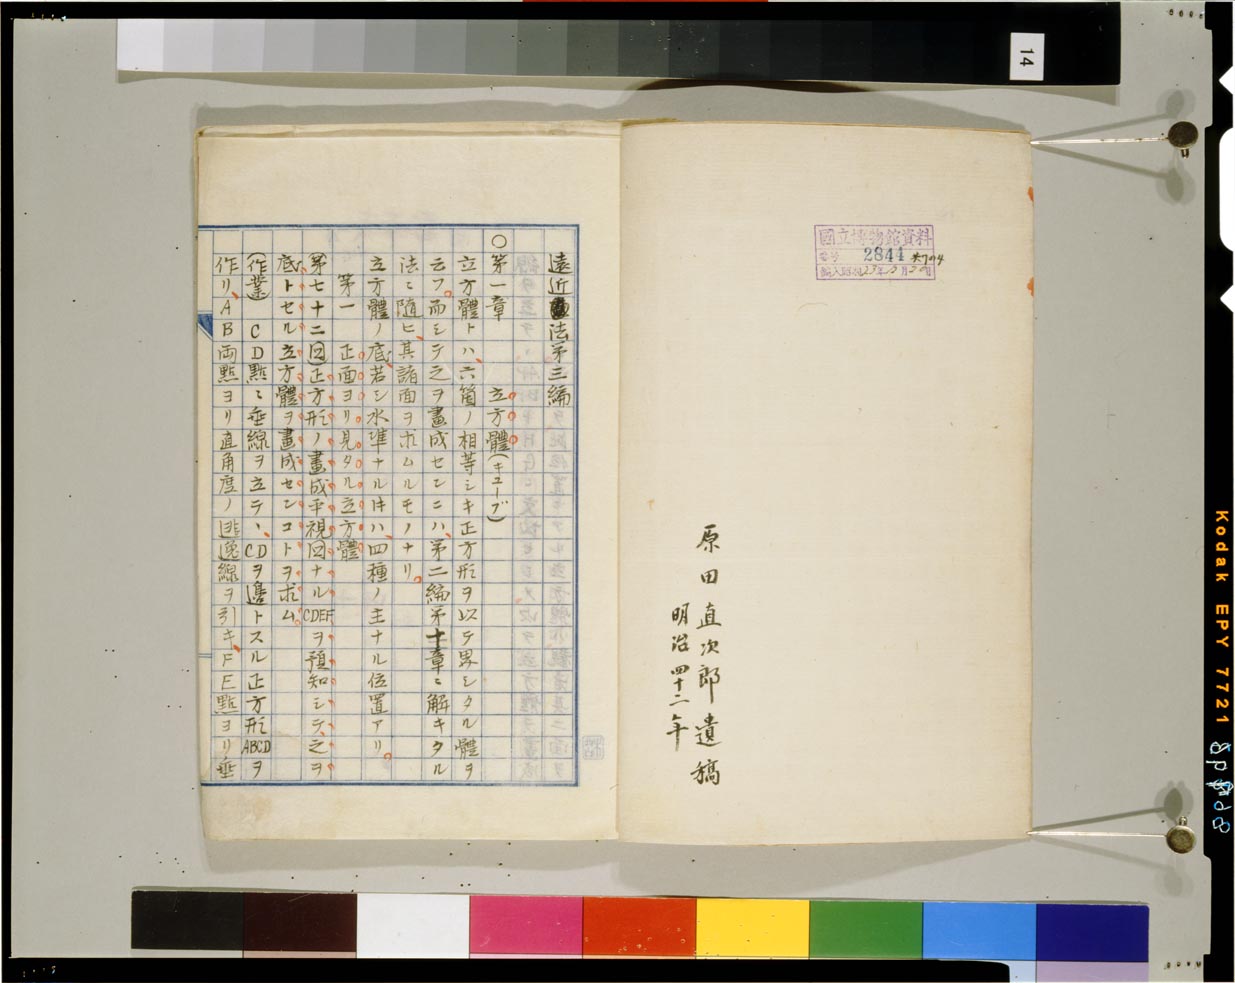 國立博物館資料
番号 2844
原田直次郎遺稿
明治四十二年
遠近法第三編
○第一章 立方體(キューブ)
立方體トハ、六箇ノ相等シキ正方形ヲ以テ界シタル體ヲ
云フ。而シテ之ヲ畫成センニハ、第二編第十章ニ解キタル
法ニ随ヒ、其諸面ヲホムルモノナリ。
立方體ノ底、若シ水準ナルトキハ、四種ノ主ナル位置アリ。
第一 正面ヨリ見タル立方體
第七十二図正方形ノ畫成平視図ナルCDEFヲ預知シテ、之ヲ
底トセル立方體ヲ畫成センコトヲ求ム。
(作業) CD點ニ垂線ヲ立テ、CDヲ邊トスル正方形ABCDヲ
作リ、AB両點ヨリ直角度ノ逃逸線ヲ引キ、FE點ヨリ垂
14
Kodak EPY 7721